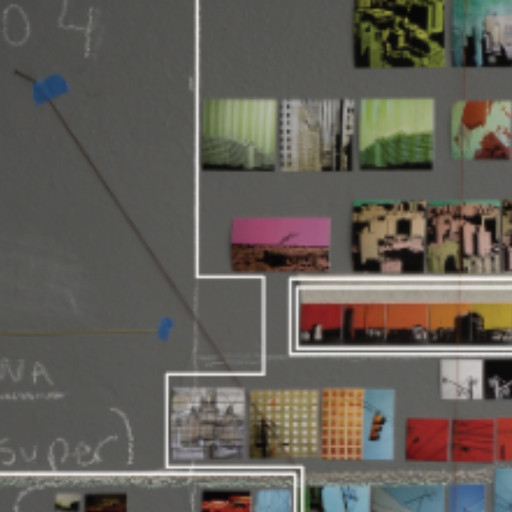 04
WA
super)